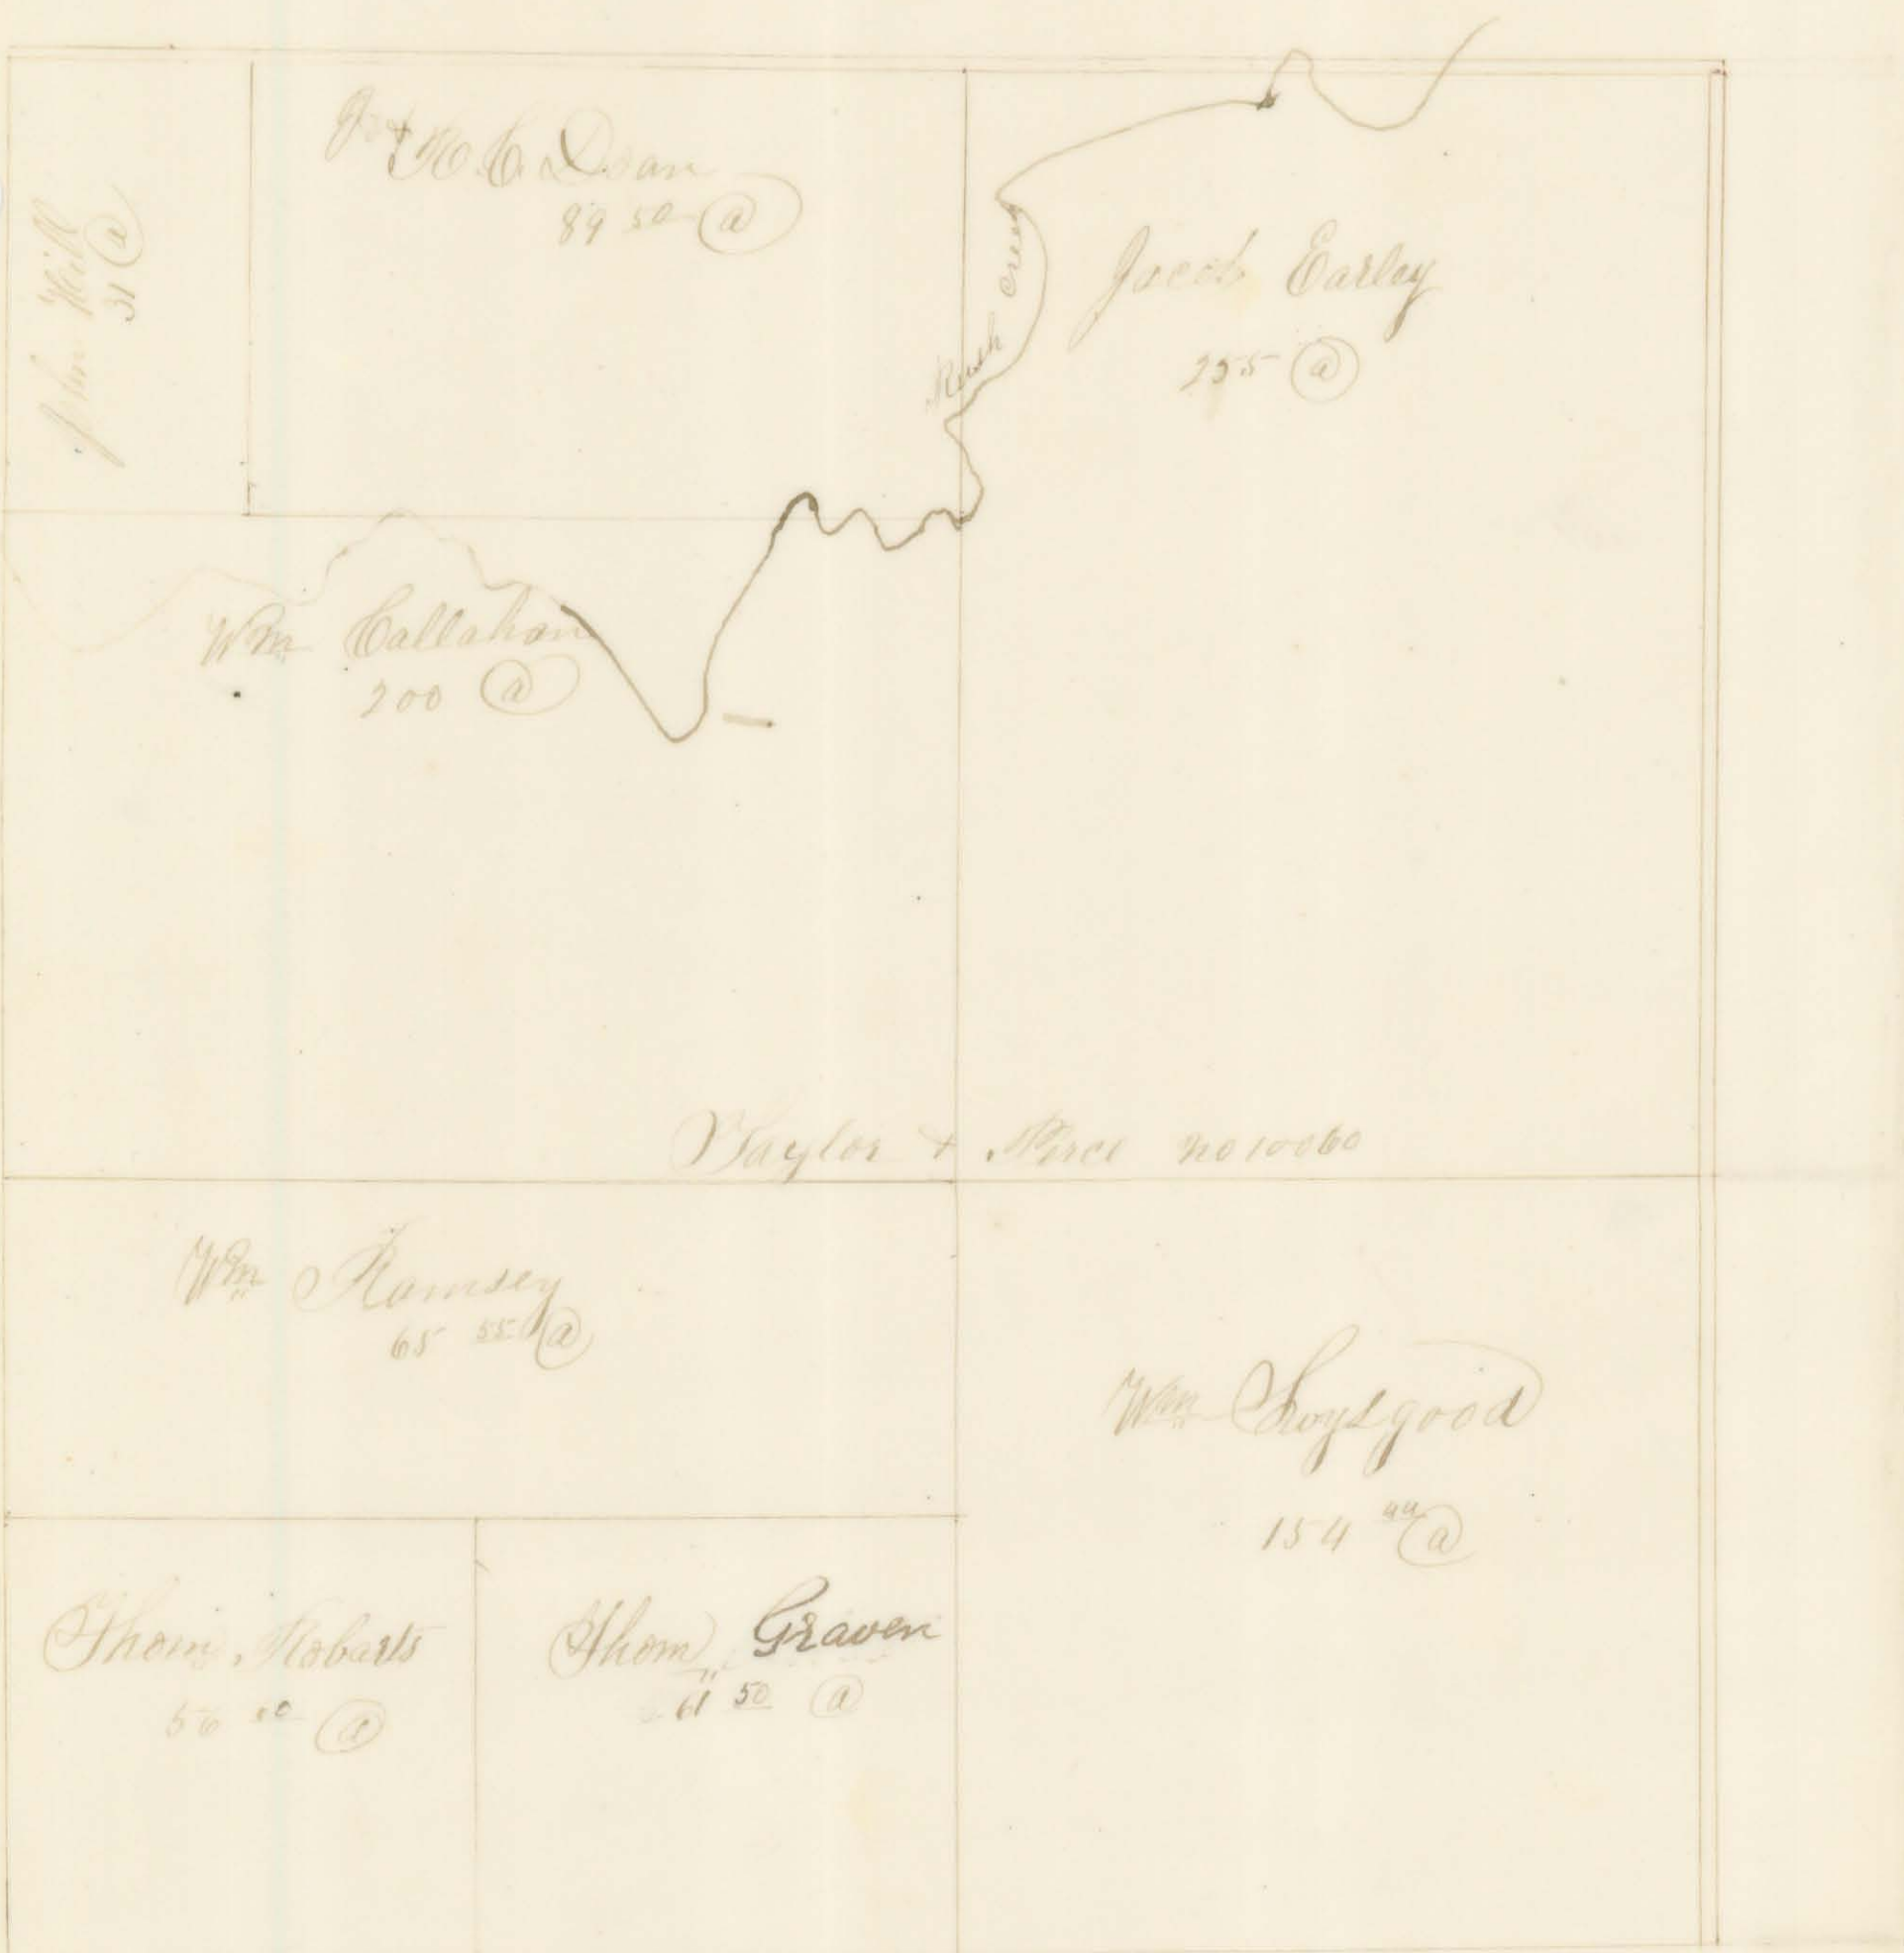 John Hill
31 @
J & H. C. Dean
89 50 @
Rush Creek
Jacob Earley
255 @
Wm Callahan
200 @
Taylor & Perce no 10060
Wm Ramsey
65 55 @
Wm Loysgood
154 44 @
Thom. Robarts
50 @
Thom Graven
61 50 @